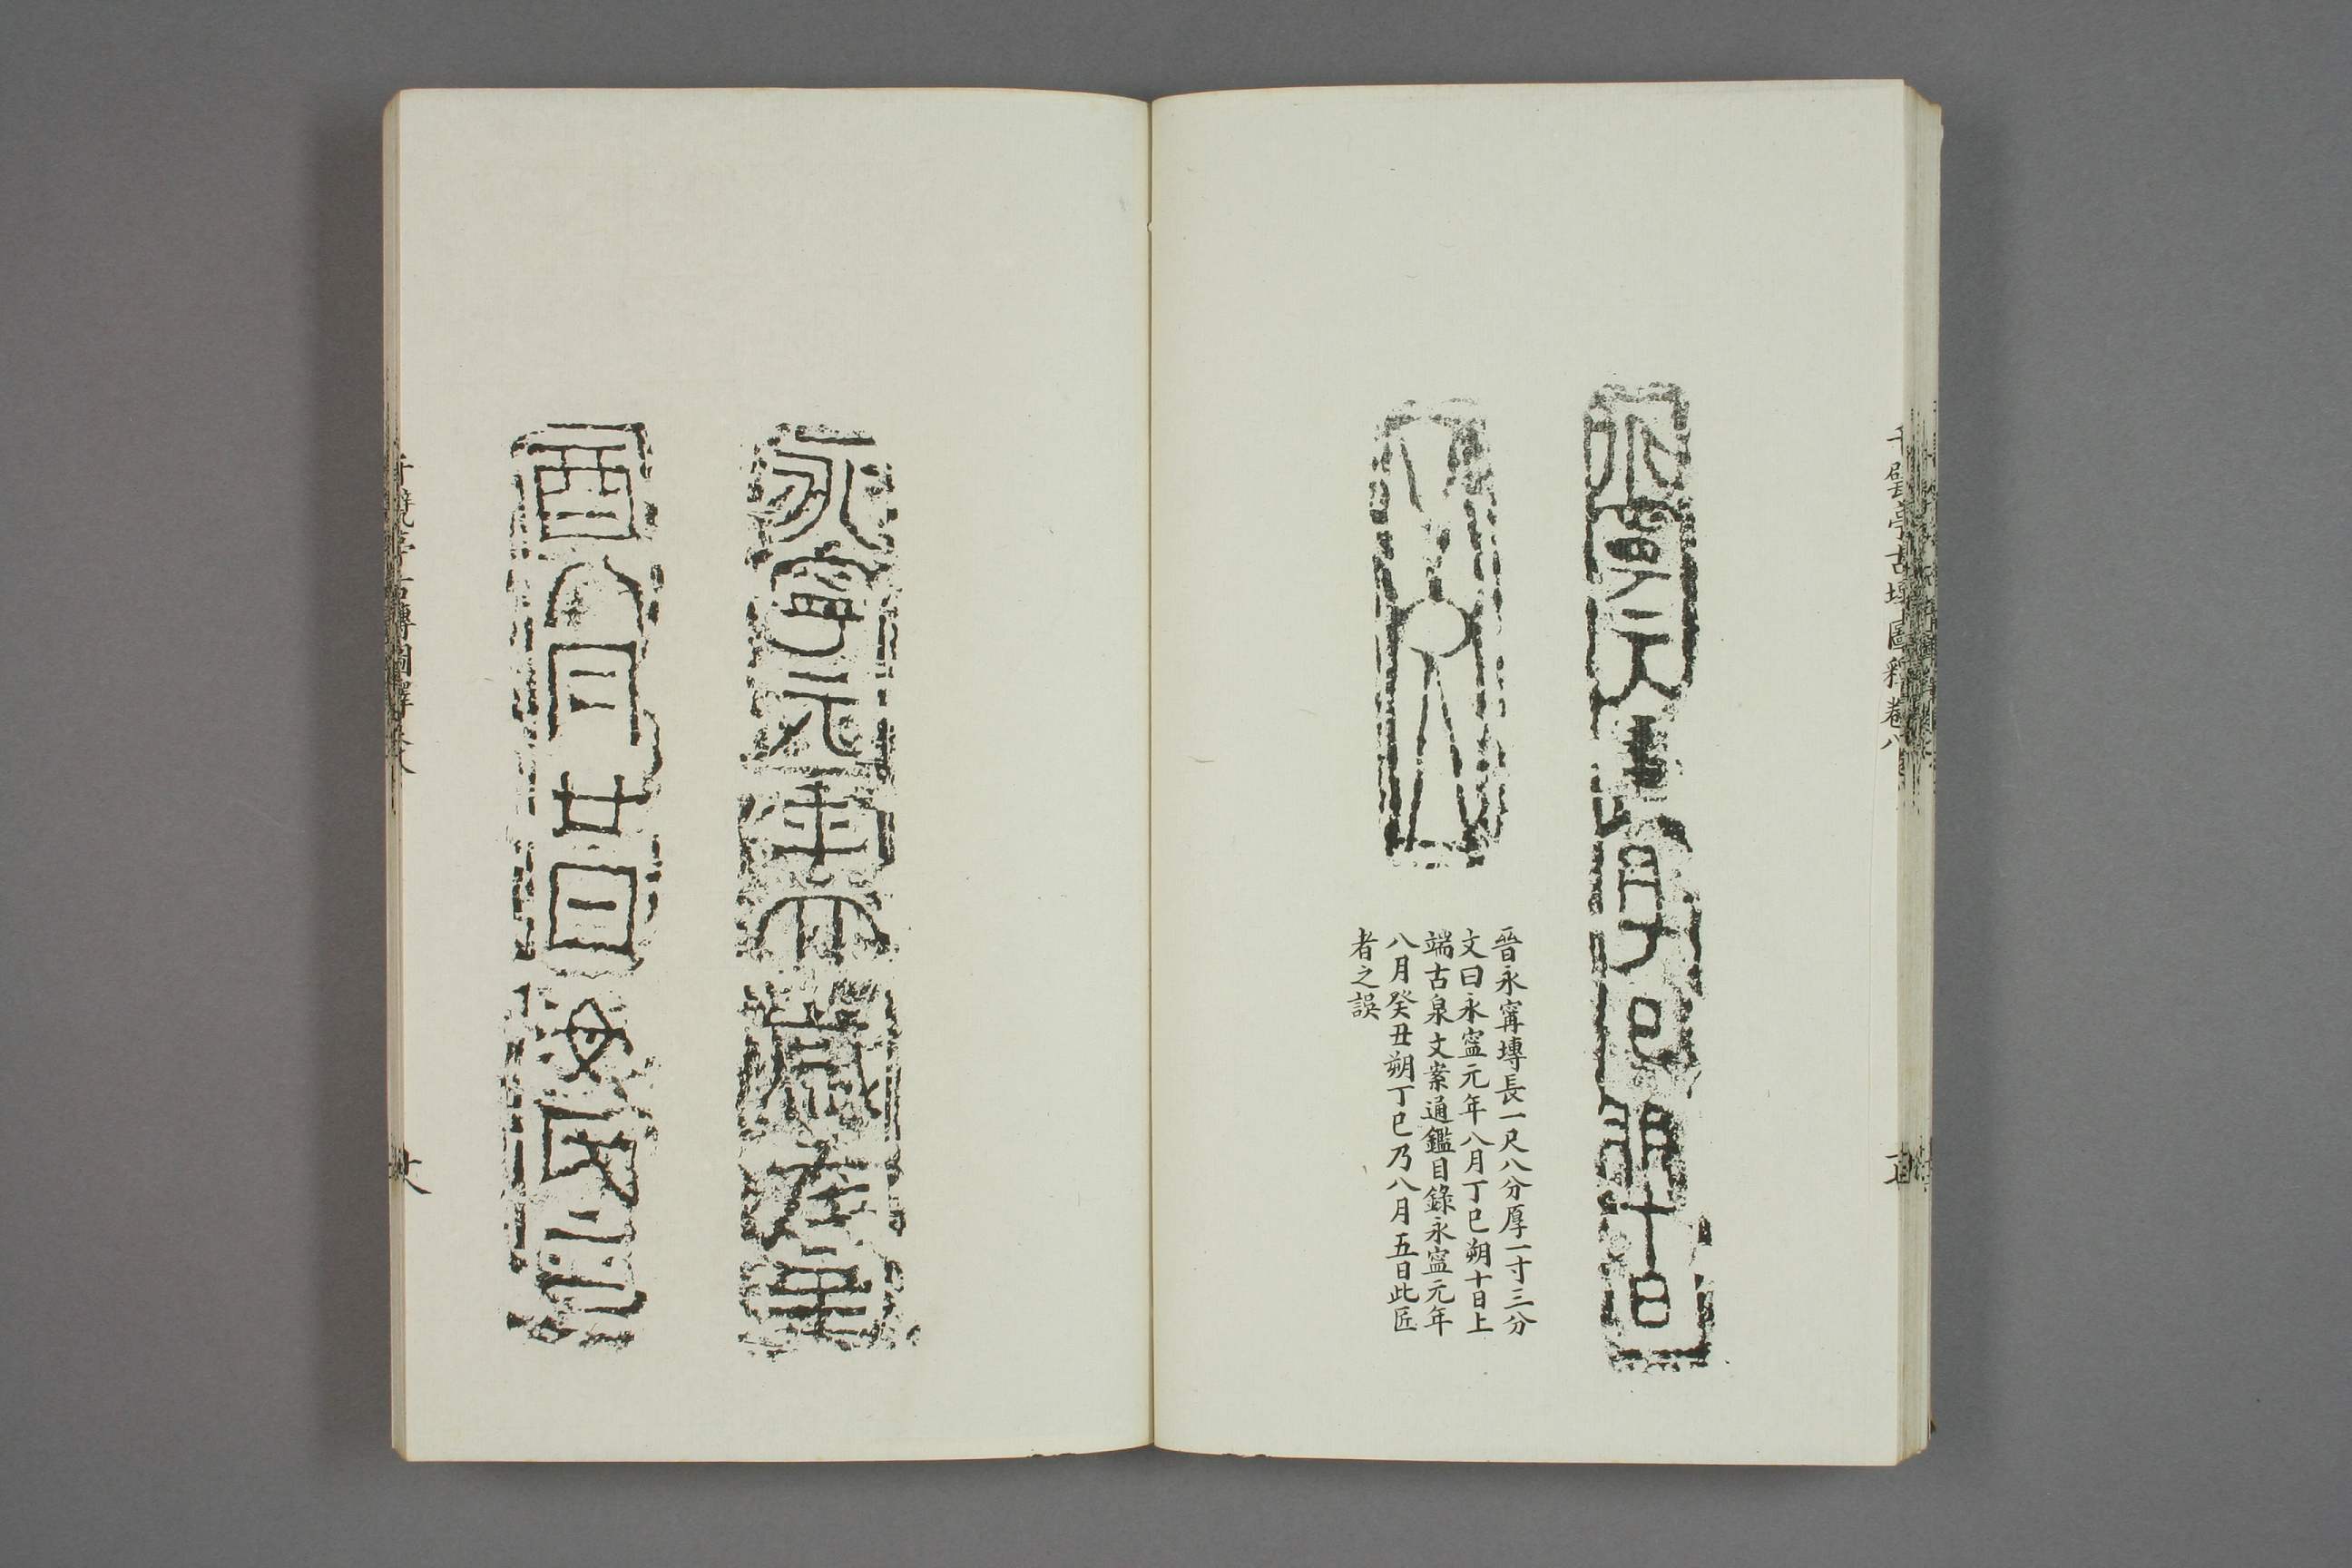 千甓亭古塼圖釋卷八
永寧元年八月丁巳朔十日
晉永寗塼長一尺八分厚一寸三分
文曰永寍元年八月丁巳朔十日上
端古泉文案通鑑目錄永寍元年
八月癸丑朔丁巳乃八月五日此匠
者之誤
永寧元年太歲在辛
酉八月廿日